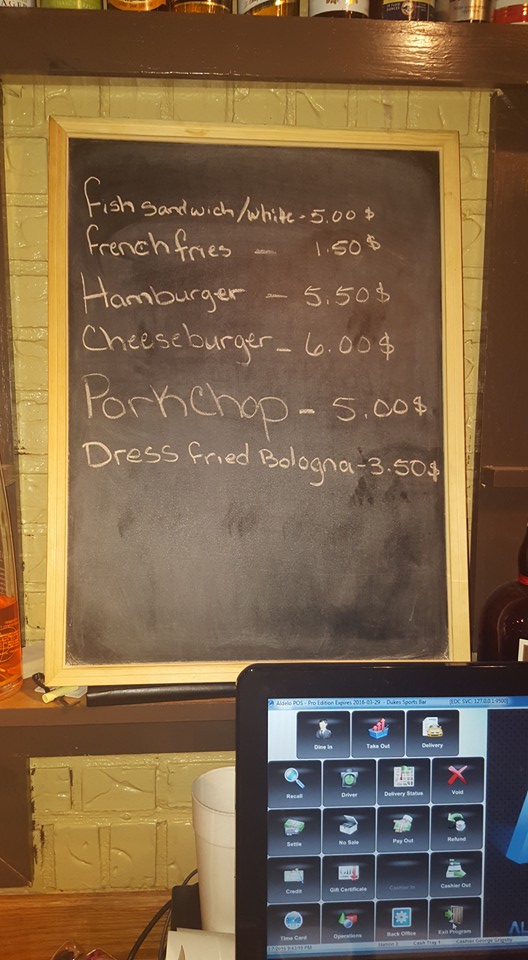 Fish sandwich/white - 5.00 $
French fries - 1.50 $
Hamburger - 5.50 $
Cheeseburger - 6.00 $
Pork Chop - 5.00 $
Dress Fried Bologna - 3.50 $
Aldelo POS - Pro Edition Expires 2016-03-29 - Dukes Sports Bar [EDC SVC: 127.0.0.1:9500]
Dine In Take Out Delivery
Recall Driver Delivery Status Void
Settle No Sale Pay Out Refund
Credit Gift Certificate Cash In Cashier Out
Time Card Operations Back Office Exit Program
Station 1 Cash Tray 1 Cashier: George Grigsby